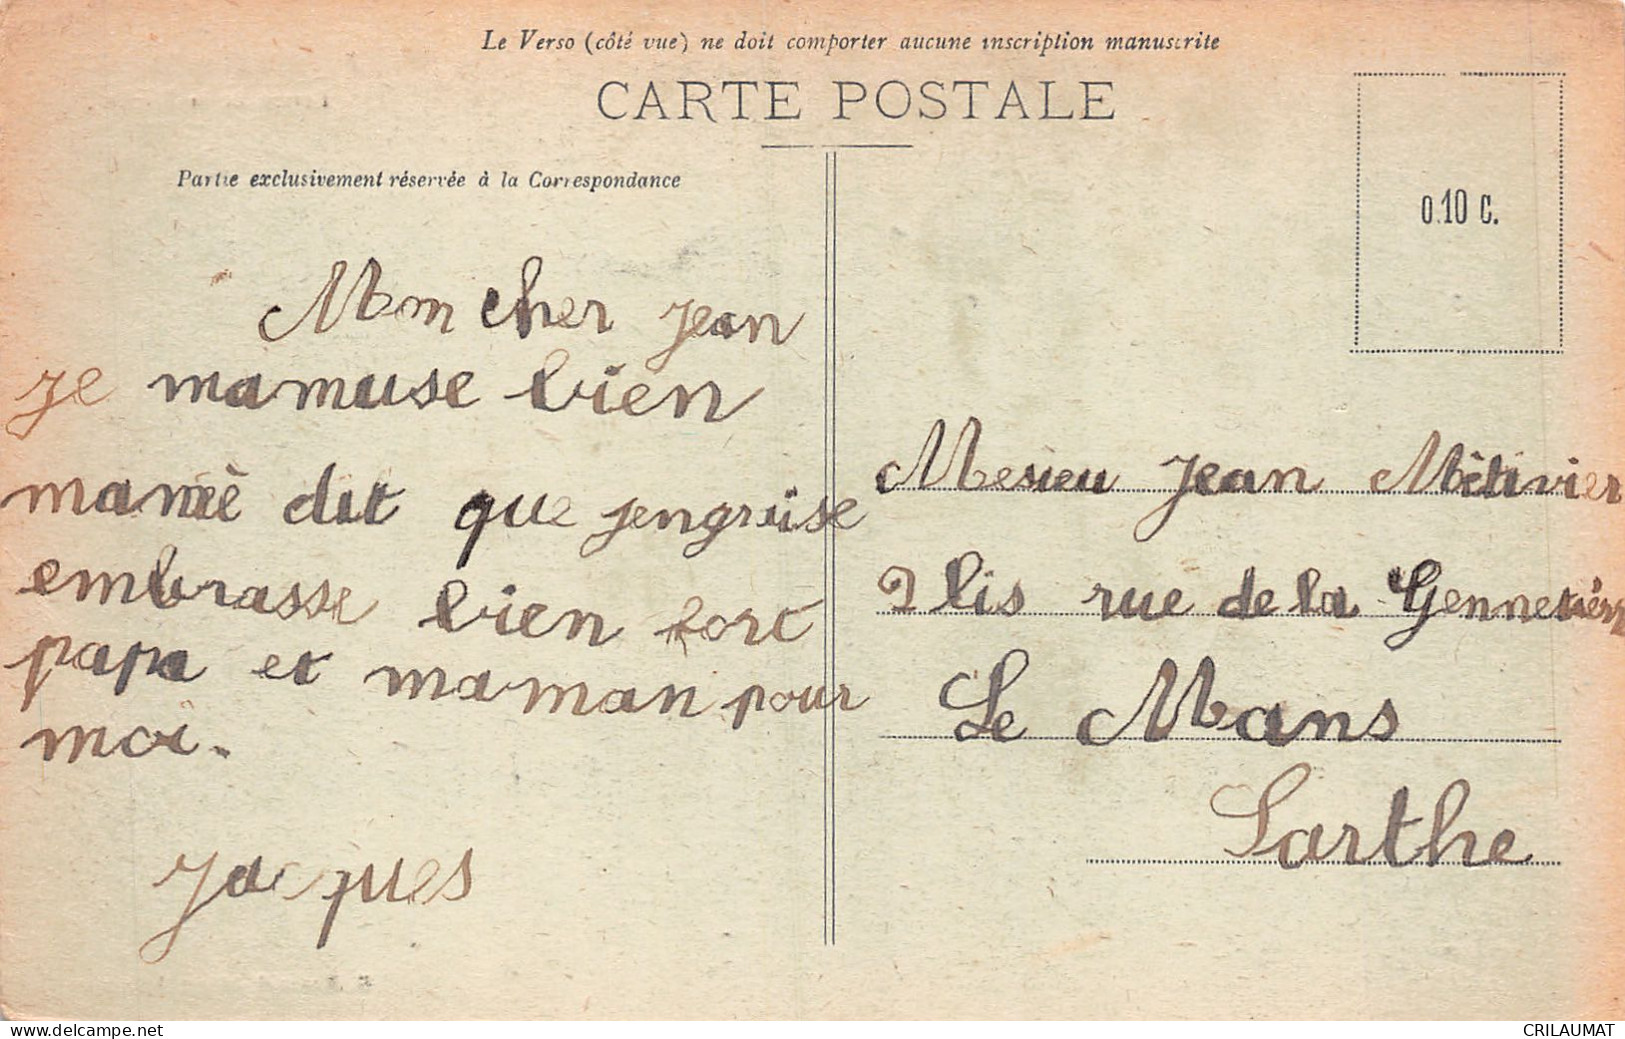 Le Verso (côté vue) ne doit comporter aucune inscription manuscrite
CARTE POSTALE
Partie exclusivement réservée à la Correspondance
0.10 C.
Mon cher jean
je mamuse bien
dit que jengraise
embrasse bien fort
papa et maman pour
moi.
Jacques
Mesieu Jean Mètivier
2 lis rue de la
Le Mans
Sarthe
www.delcampe.net
CRILAUMAT